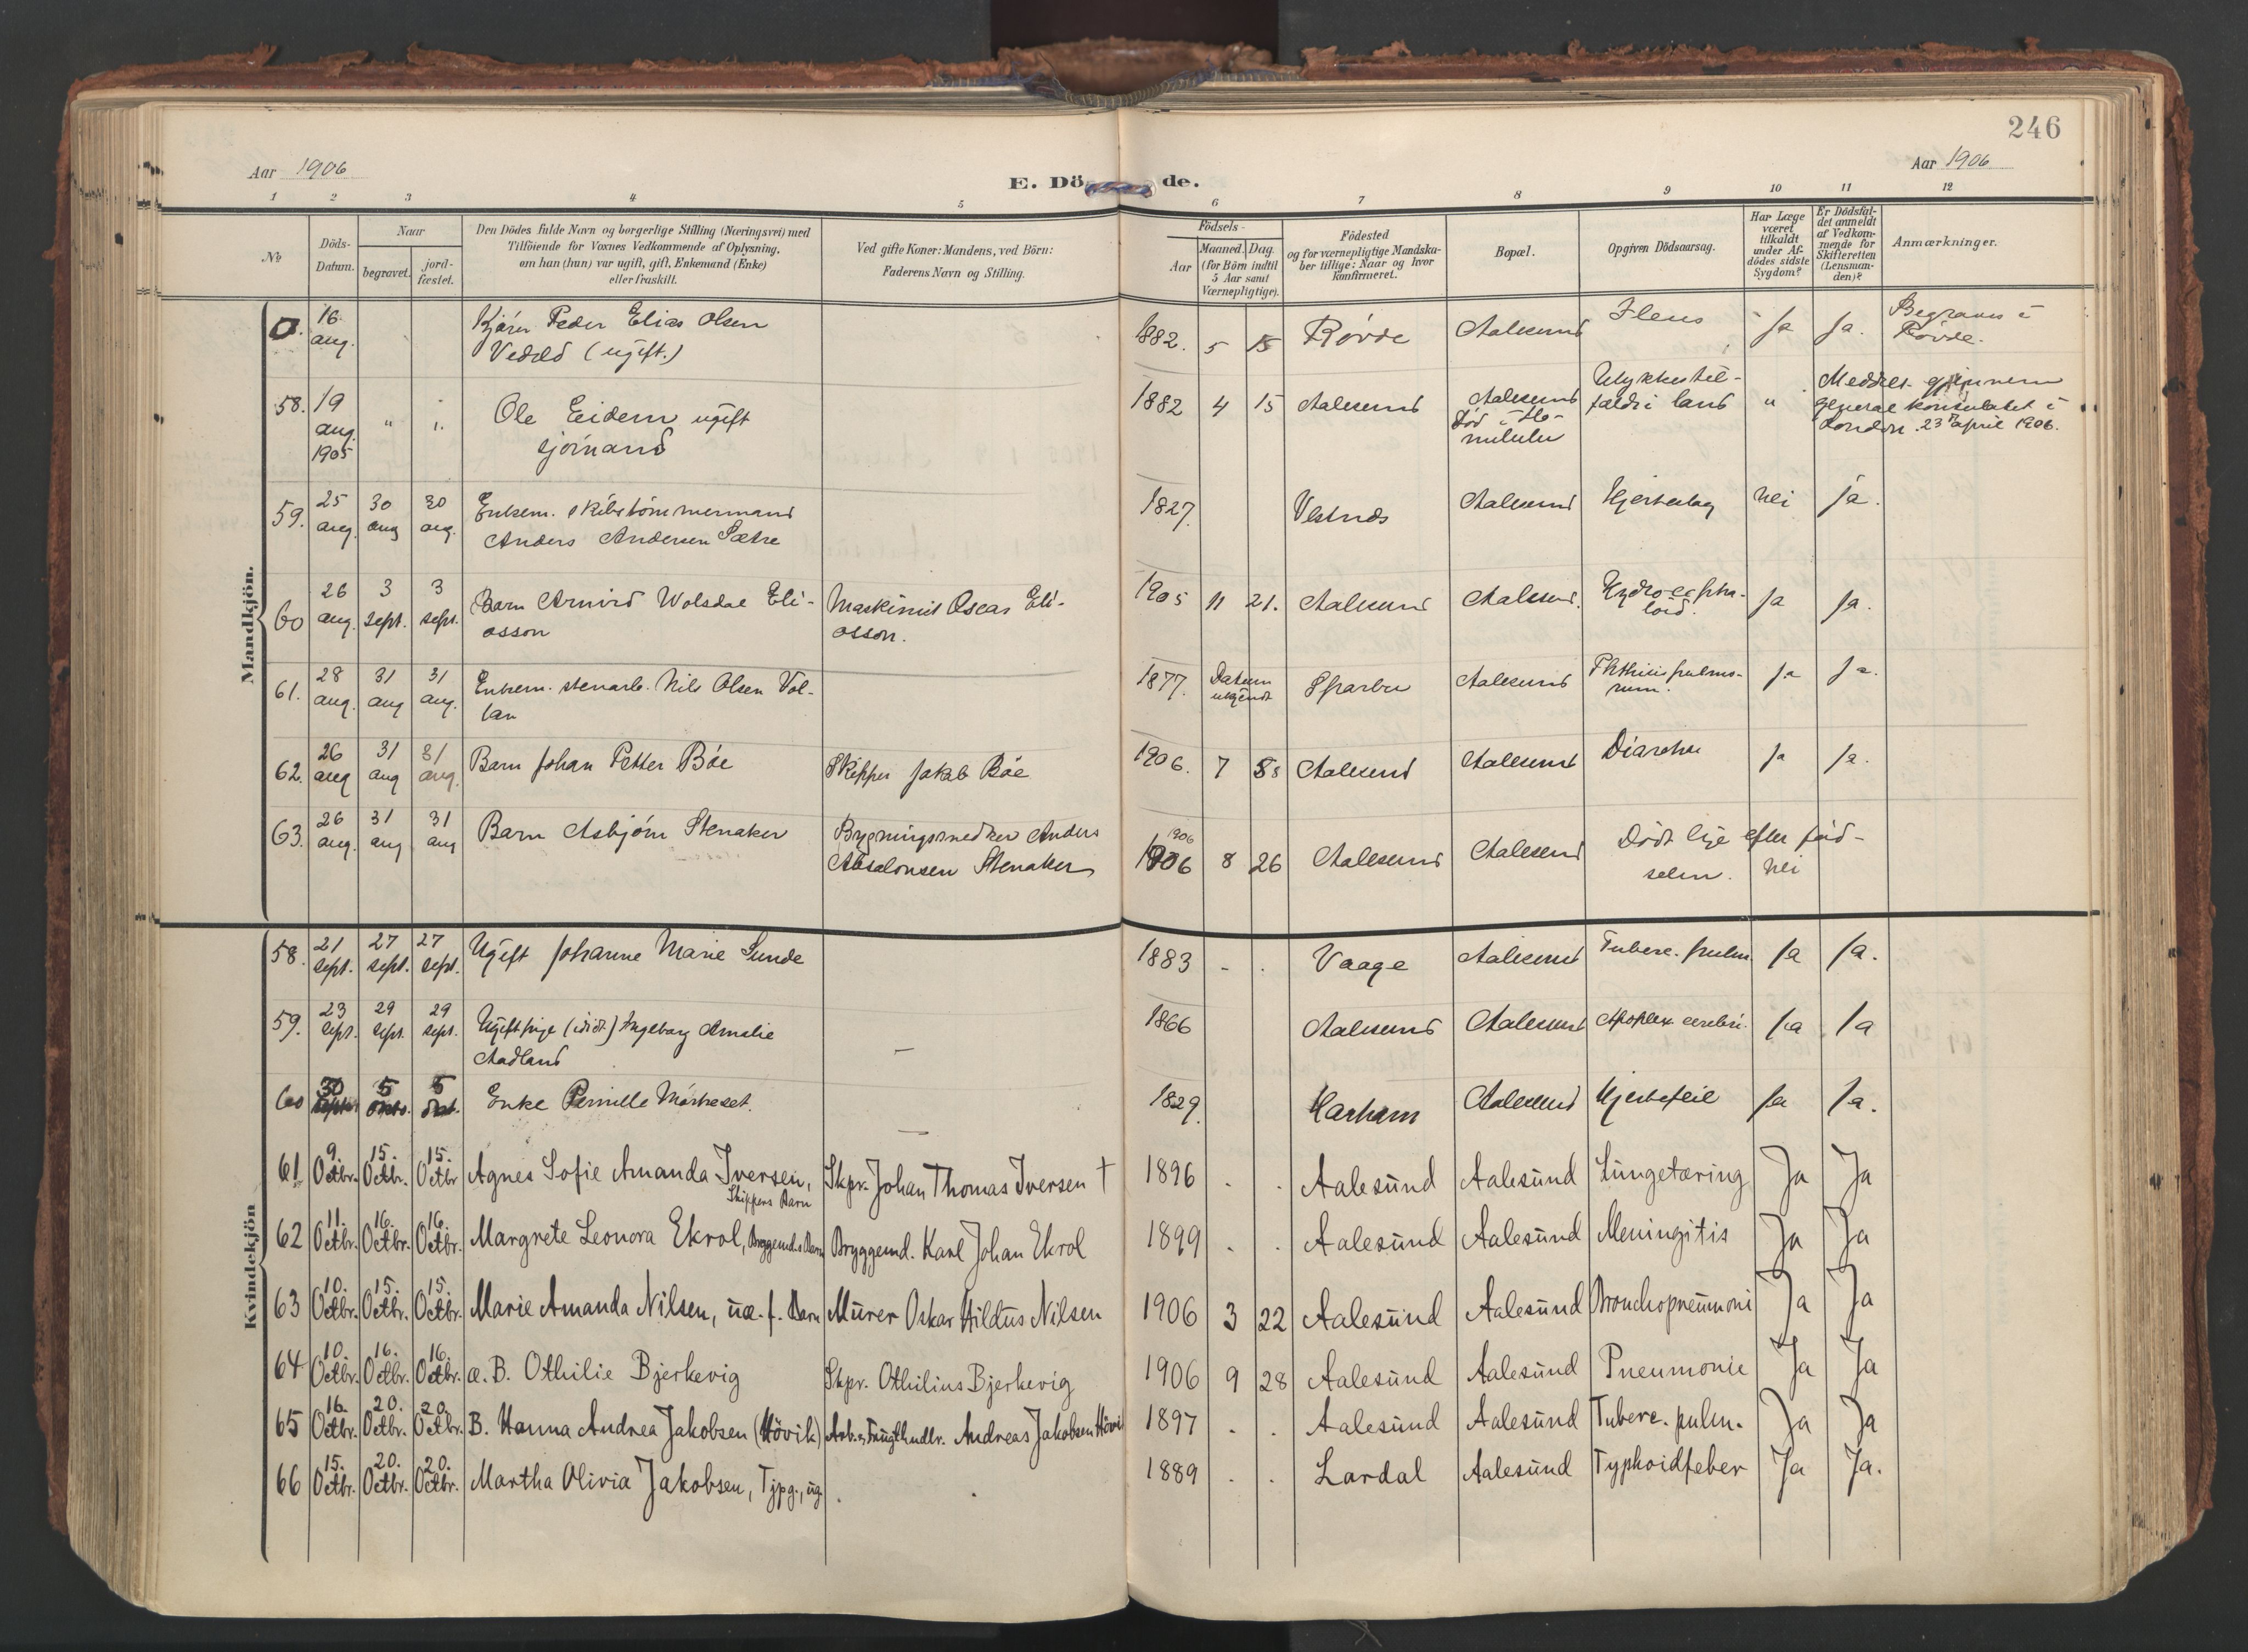 246
Aar 1906
E. Dö de.
Aar 1906
1 2 3 4 5 6 7 8 9 10 11 12
No
Döds-Datum.
Naar
begravet.
jord-fæstet.
Den Dödes fulde Navn og borgerlige Stilling (Næringsvei) med
Tilföiende for Voxnes Vedkommende af Oplysning,
om han (hun) var ugift, gift, Enkemand (Enke)
eller fraskilt.
Ved gifte Koner: Mandens, ved Börn:
Faderens Navn og Stilling.
Födsels-
Aar
Maaned. Dag.
(for Börn indtil
5 Aar samt
Værnepligtige).
Födested
og for værnepligtige Mandska-
ber tillige: Naar og hvor
konfirmeret.
Bopæl.
Opgiven Dödsaarsag.
Har Læge
været
tilkaldt
under Af-
dödes sidste
Sygdom?
Er Dödsfal-
det anmeldt
af Vedkom-
mende for
Skifteretten
(Lensman-
den)?
Anmærkninger.
Mandkjön.
0. 16 aug. Peder Elias Olsen
Vedeld (ugift.) 1882. 5 15 Rövde Aalesund Ileus Ja Ja. Begraves i
Rövde.
58. 19 aug. 1905 " " Ole Eidem ugift
sjömand 1882 4 15 Aalesund Aalesund
död i Ho-
nolulu Ulykkestil-
fælde i land " Meddelt gjennem
generalkonsulatet i
London 23 april 1906.
59. 25 aug. 30 aug 30 aug. Enkem. skibstömmermand
Anders Andersen Sætre 1827. Vestnæs Aalesund Hjerteslag nei ja.
60 26 aug. 3 sept. 3 sept. Barn Arnvid Wolsdal Eli-
asson Maskinist Oscar Eli-
asson. 1905 11 21. Aalesund Aalesund. Hydrocepha-
loid. Ja Ja.
61. 28 aug. 31 aug 31 aug. Enkem. stenarb. Nils Olsen Vol-
lan 1877. Datum
ukjendt Sparbu Aalesund Phthisis pulmo-
num. Ja Ja.
62. 26 aug 31 aug 31 aug. Barn Johan Petter Böe Skipper Jakob Böe 1906. 7 8 Aalesund Aalesund Diarrhe Ja Ja.
63. 26 aug. 31 aug 31 aug Barn Asbjörn Stenaker Bygningssnedker Anders
Absalonsen Stenaker 1906
1906 8 26 Aalesund Aalesund Död lige efter föd-
selen. nei
Kvindekjön
58. 21 sept. 27 sept. 27 sept. Ugift Johanne Marie Sunde 1883 - . Vaage Aalesund Tuberc. pulm. Ja Ja.
59. 23 sept. 29 sept. 29 sept. Ugift pige (idiot) Ingeborg Amalie
Aadland — 1866 Aalesund Aalesund Apoplex. cerebri. Ja Ja
60 30 septbr 5 oktb. 5 okt. Enke Pernille Mörkeset. — 1829. Harham Aalesund Hjertefeil Ja Ja.
61. 9. Octbr. 15. Octbr. 15. Octbr Agnes Sofie Amanda Iversen,
Skippers Barn Skpr. Johan Thomas Iversen † 1896 . . Aalesund Aalesund Lungetæring Ja Ja
62 11. Octbr. 16. Octbr. 16. Octbr. Margrete Leonora Ekrol, Bryggemds Barn Bryggemd. Karl Johan Ekrol 1899 . . Aalesund Aalesund Meningitis Ja Ja
63 10. Octbr. 15. Octbr. 15. Octbr. Marie Amanda Nilsen, uæ. f. Barn Murer Oskar Hildus Nilsen 1906 3 22 Aalesund Aalesund Bronchopneumoni Ja Ja
64 10. Octbr. 16. Octbr. 16. Octbr. æ. B. Othilie Bjerkevig Skpr. Othilius Bjerkevig 1906 9 28 Aalesund Aalesund Pneumonie Ja Ja
65 16. Octbr. 20. Octbr. 20. Octbr. B. Hanna Andrea Jakobsen (Hövik) Arb. Frugthndlr. Andreas Jakobsen Hövik 1897 . . Aalesund Aalesund Tuberc. pulm. Ja Ja
66 15. Octbr. 20. Octbr. 20. Octbr. Martha Olivia Jakobsen, Tjpg., ug. . . 1889 . . Lardal Aalesund Typhoidfeber Ja Ja.